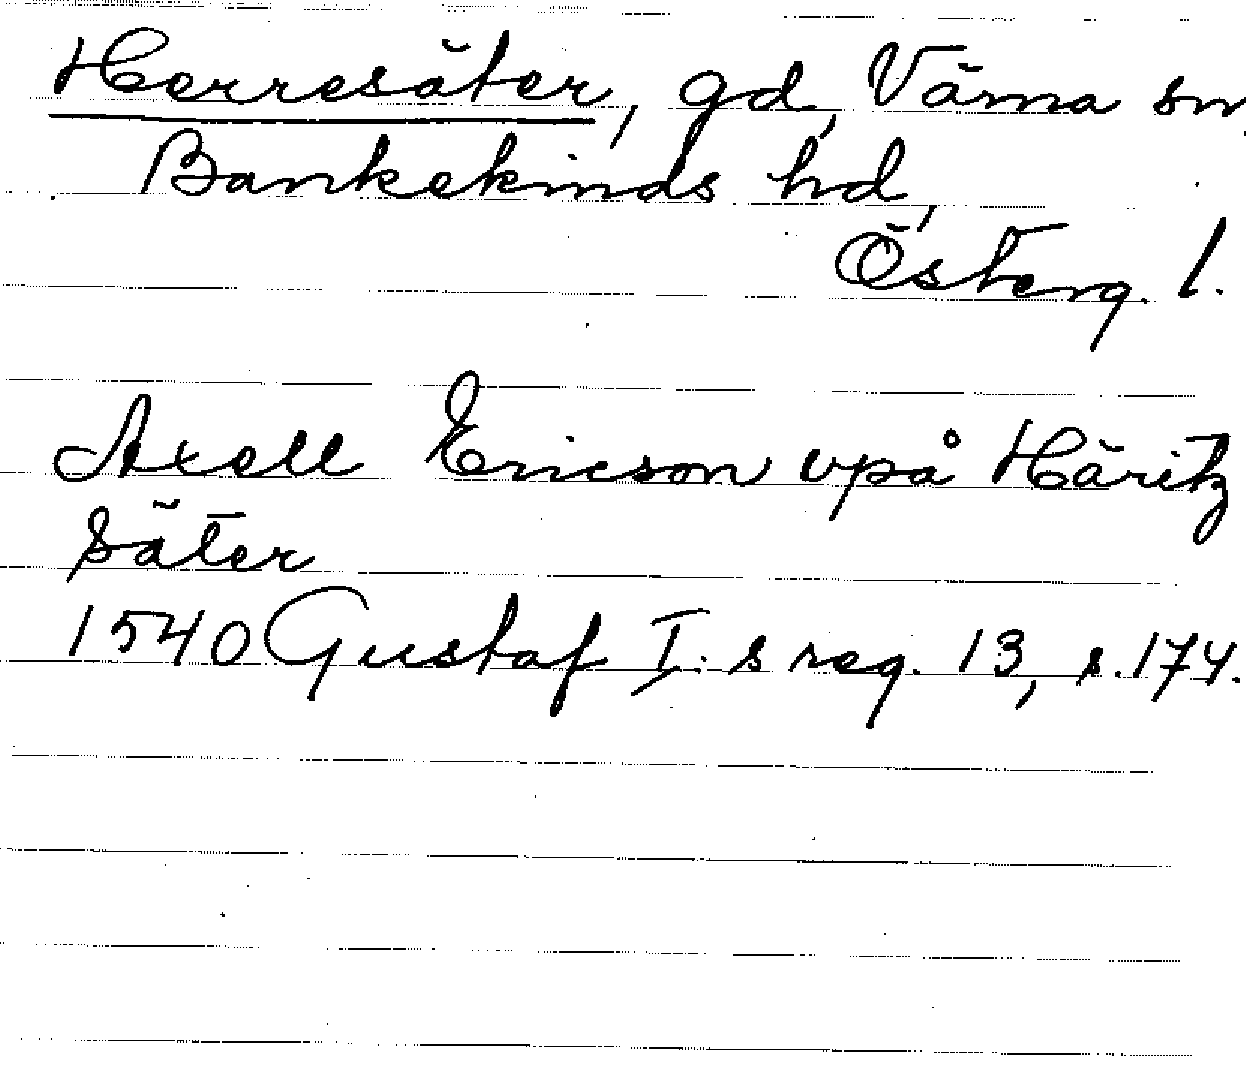 Herresäter, gd, Värna sn,
Bankekinds hd,
Österg. l.
Axell Ericson vpå Häritz
säter
1540 Gustaf I:s reg. 13, s. 174.